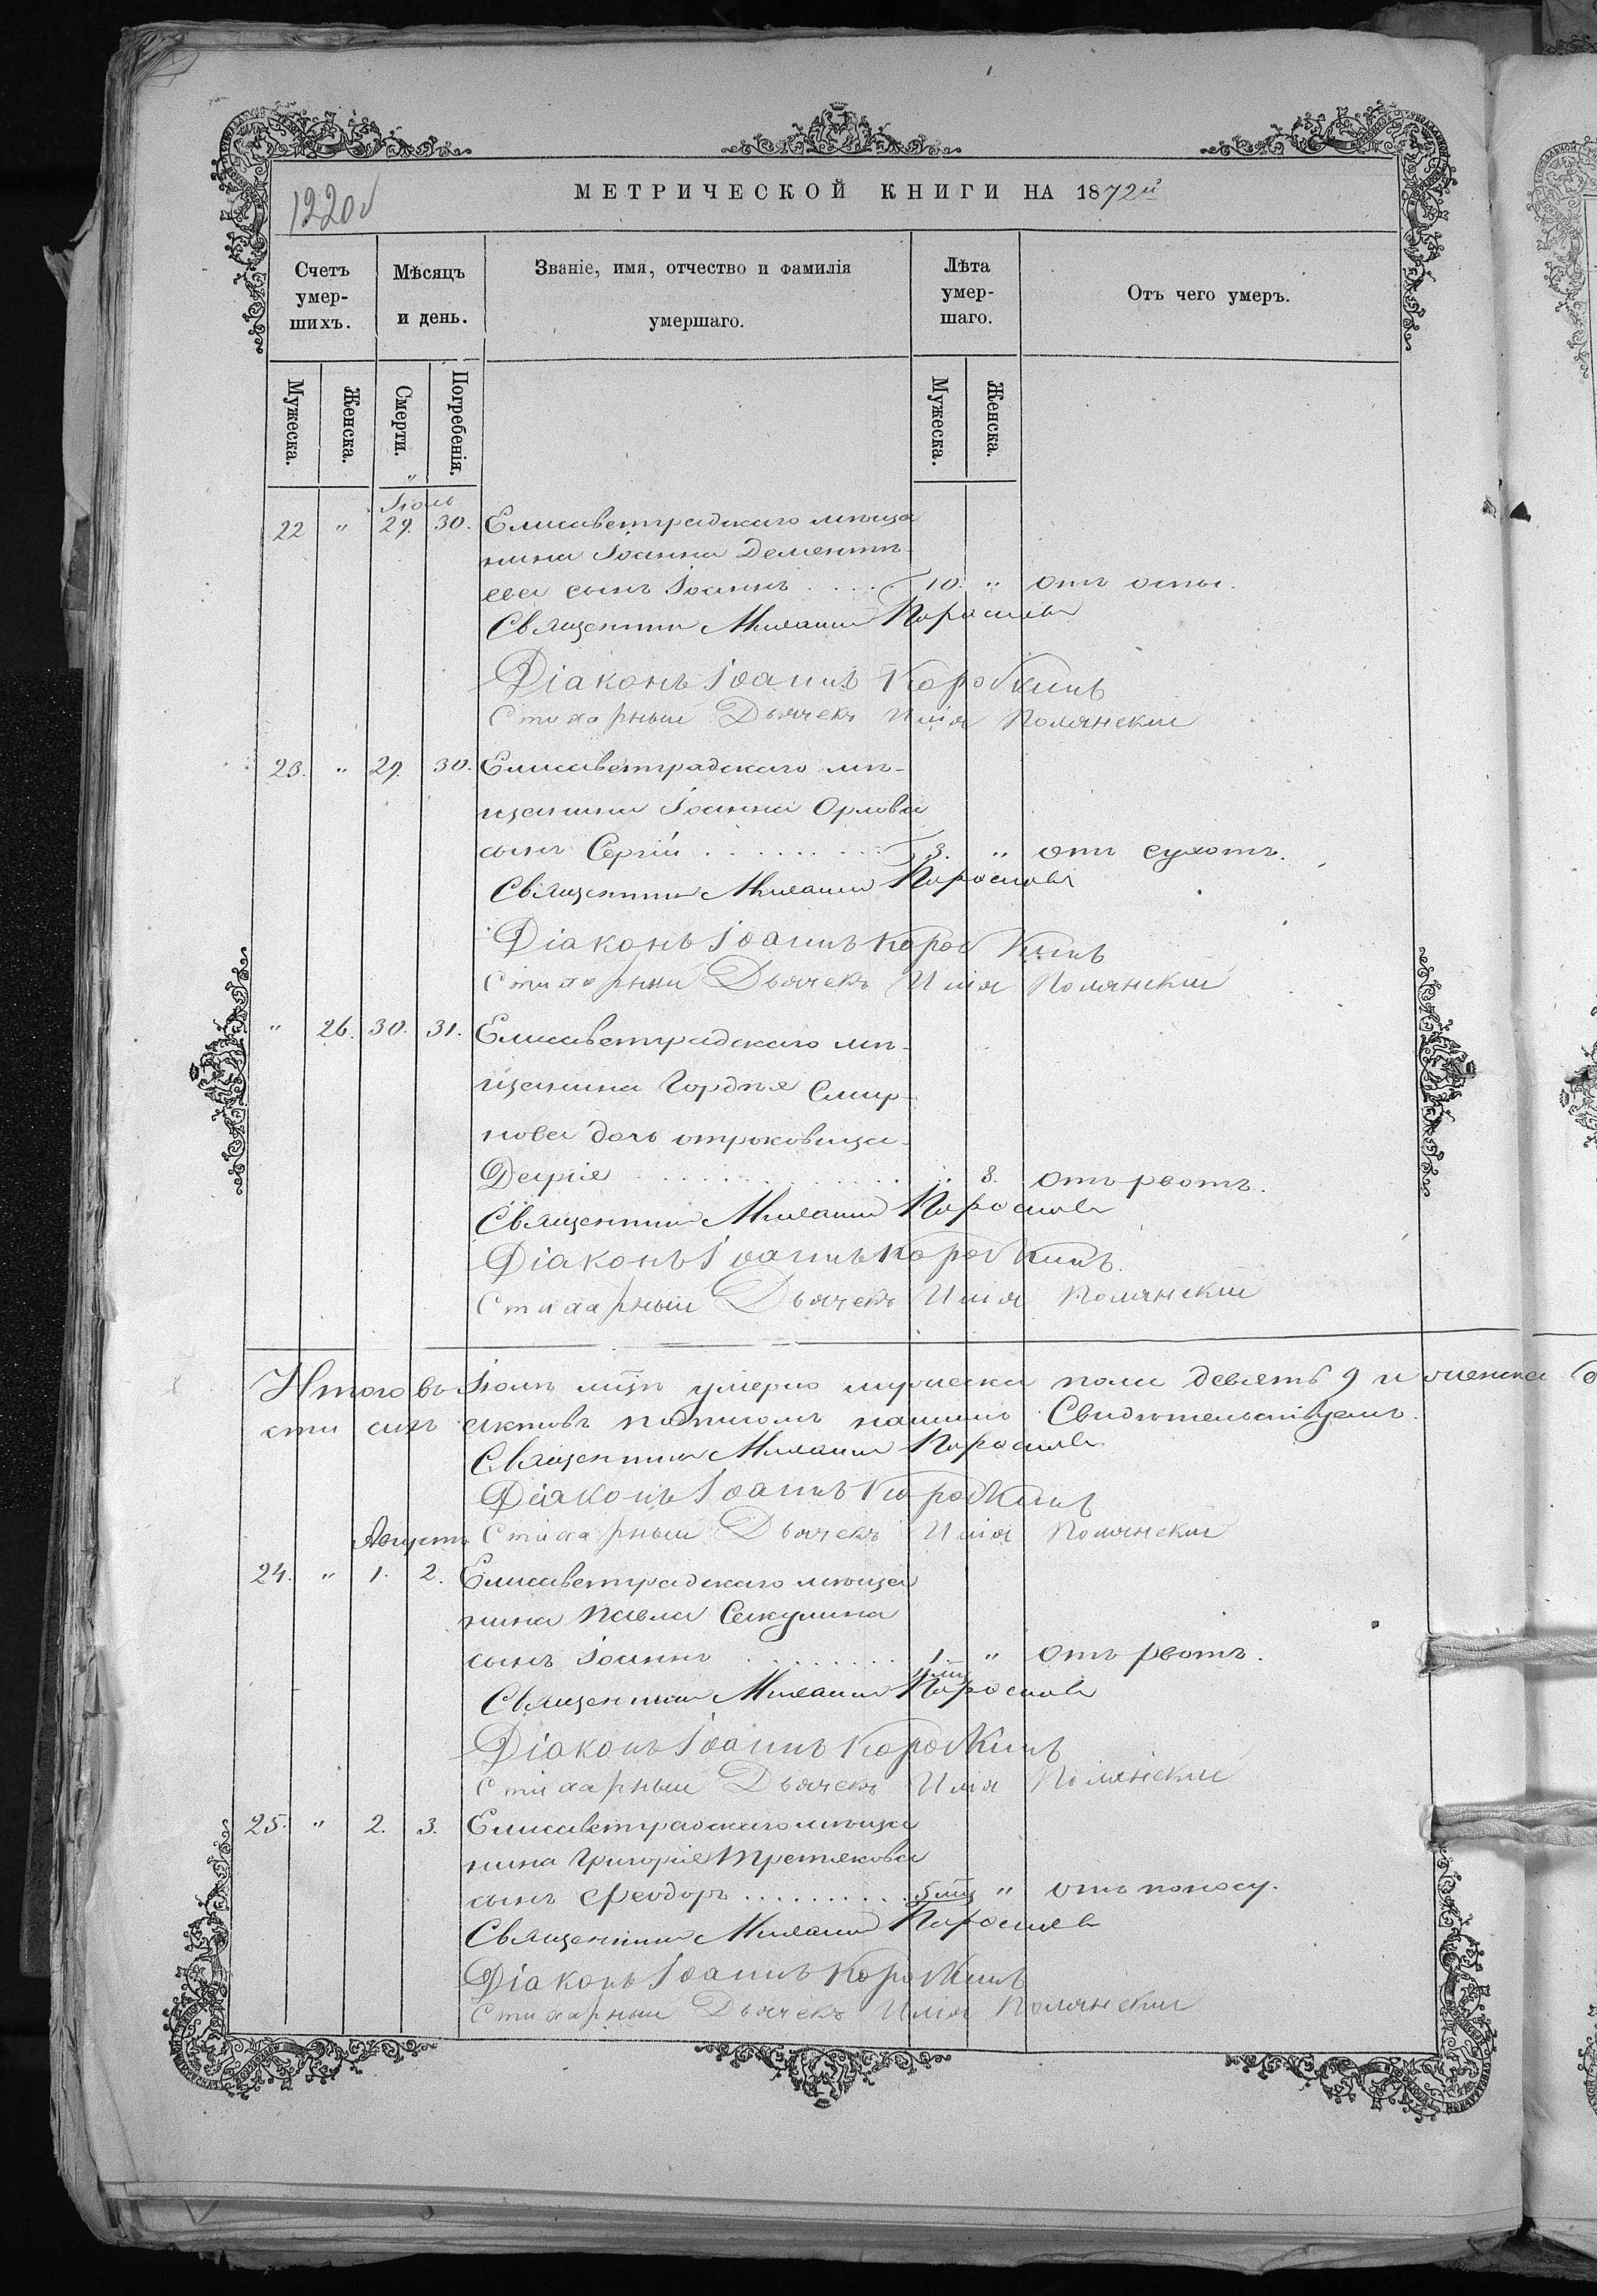 1220 √
МЕТРИЧЕСКОЙ КНИГИ НА 1872й
Счетъ умер-шихъ.
Мѣсяцъ и день.
Званіе, имя, отчество и фамилія умершаго.
Лѣта умер-шаго.
Отъ чего умеръ.
Мужеска.
Женска.
Смерти.
Погребенія.
Мужеска.
Женска.
Іюль
22 " 29. 30. Елисаветградскаго мѣща
нина Іоанна Дементь-
ева сынъ Іоаннъ . . . . 10. " отъ оспы.
Священникъ Михаилъ
Діаконъ Іоаннъ Коробкинъ
Стихарный Дьячекъ Илія Полянскій
23. " 29. 30. Елисаветградскаго мѣ-
щанина Іоанна Орлова
сынъ Сергій . . . . . . . . . 3. " отъ сухотъ.
Священникъ Михаилъ
Діаконъ Іоаннъ Коробкинъ
Стихарный Дьячекъ Илія Полянскій
" 26. 30. 31. Елисаветградскаго мѣ-
щанина Гордѣя Смир-
нова дочь отроковица
Дарія . . . . . . . . . . . . " 8. отъ рвотъ.
Священникъ Михаилъ
Діаконъ Іоаннъ Коробкинъ.
Стихарный Дьячекъ Илія Полянскій
Итого въ Іюлѣ мцѣ умерло мужеска пола девять 9 и женска
сти сихъ актовъ подписомъ нашимъ Свидѣтельствуемъ.
Священникъ Михаилъ
Діаконъ Іоаннъ Коробкинъ
Августъ Стихарный Дьячекъ Илія Полянскій
24. " 1. 2. Елисаветградскаго мѣща
нина Павла Секулина
сынъ Іоаннъ . . . . . . . . 1. " отъ рвотъ.
Священникъ Михаилъ
Діаконъ Іоаннъ Коробкинъ
Стихарный Дьячекъ Илія Полянскій
25. " 2. 3. Елисаветградскаго мѣща
нина Григорія Третякова
сынъ Ѳеодоръ . . . . . . . . . . 5 мц " отъ поносу.
Священникъ Михаилъ
Діаконъ Іоаннъ Коробкинъ
Стихарный Дьячекъ Илія Полянскій